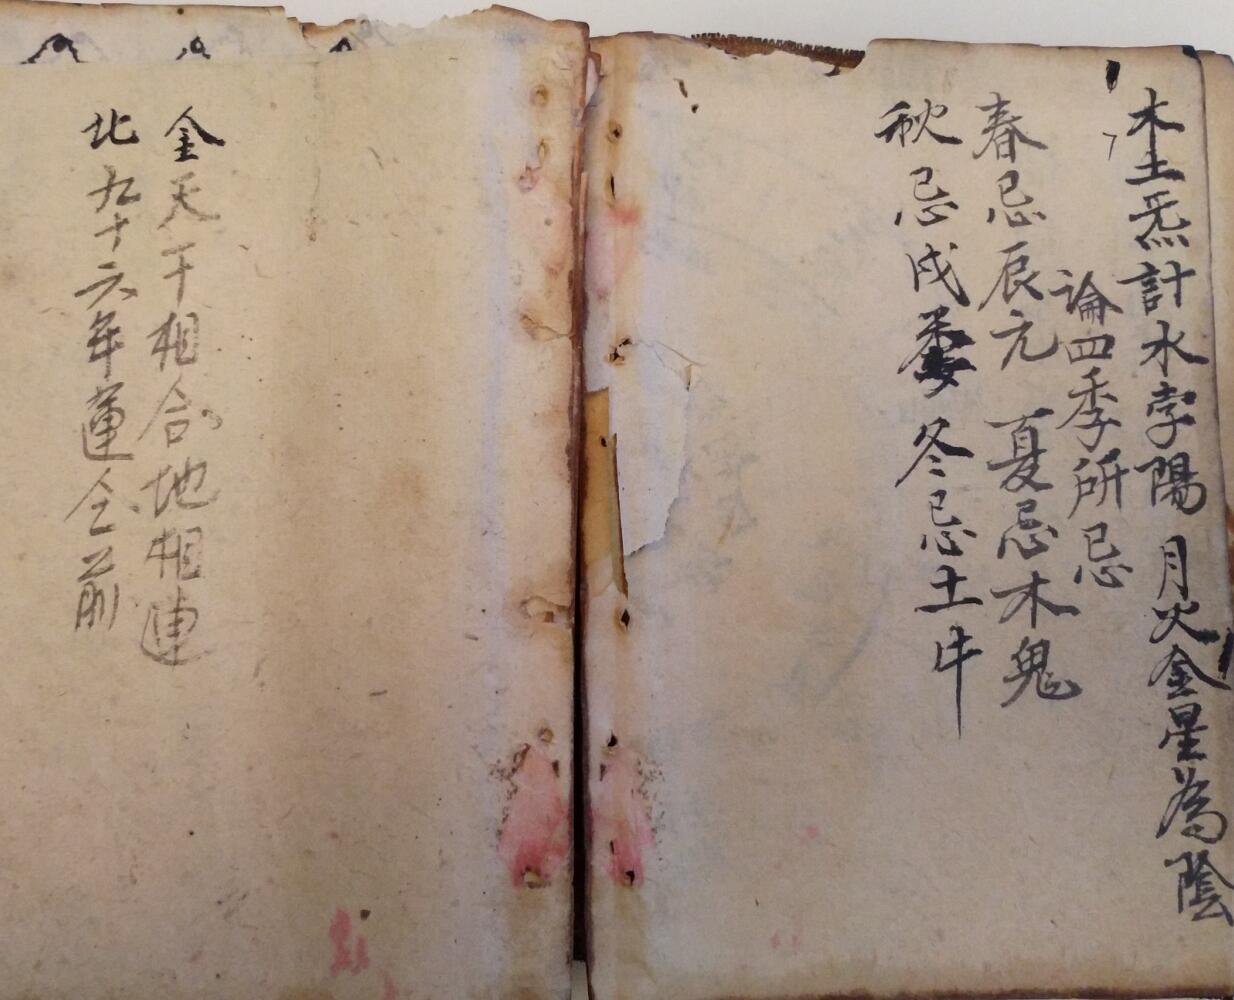 木土炁計水孛陽 月火金星為陰
論四季所忌
春忌辰亢 夏忌木鬼
秋忌戌婁 冬忌土牛
金天干相合地相連
北九十六年運仝前